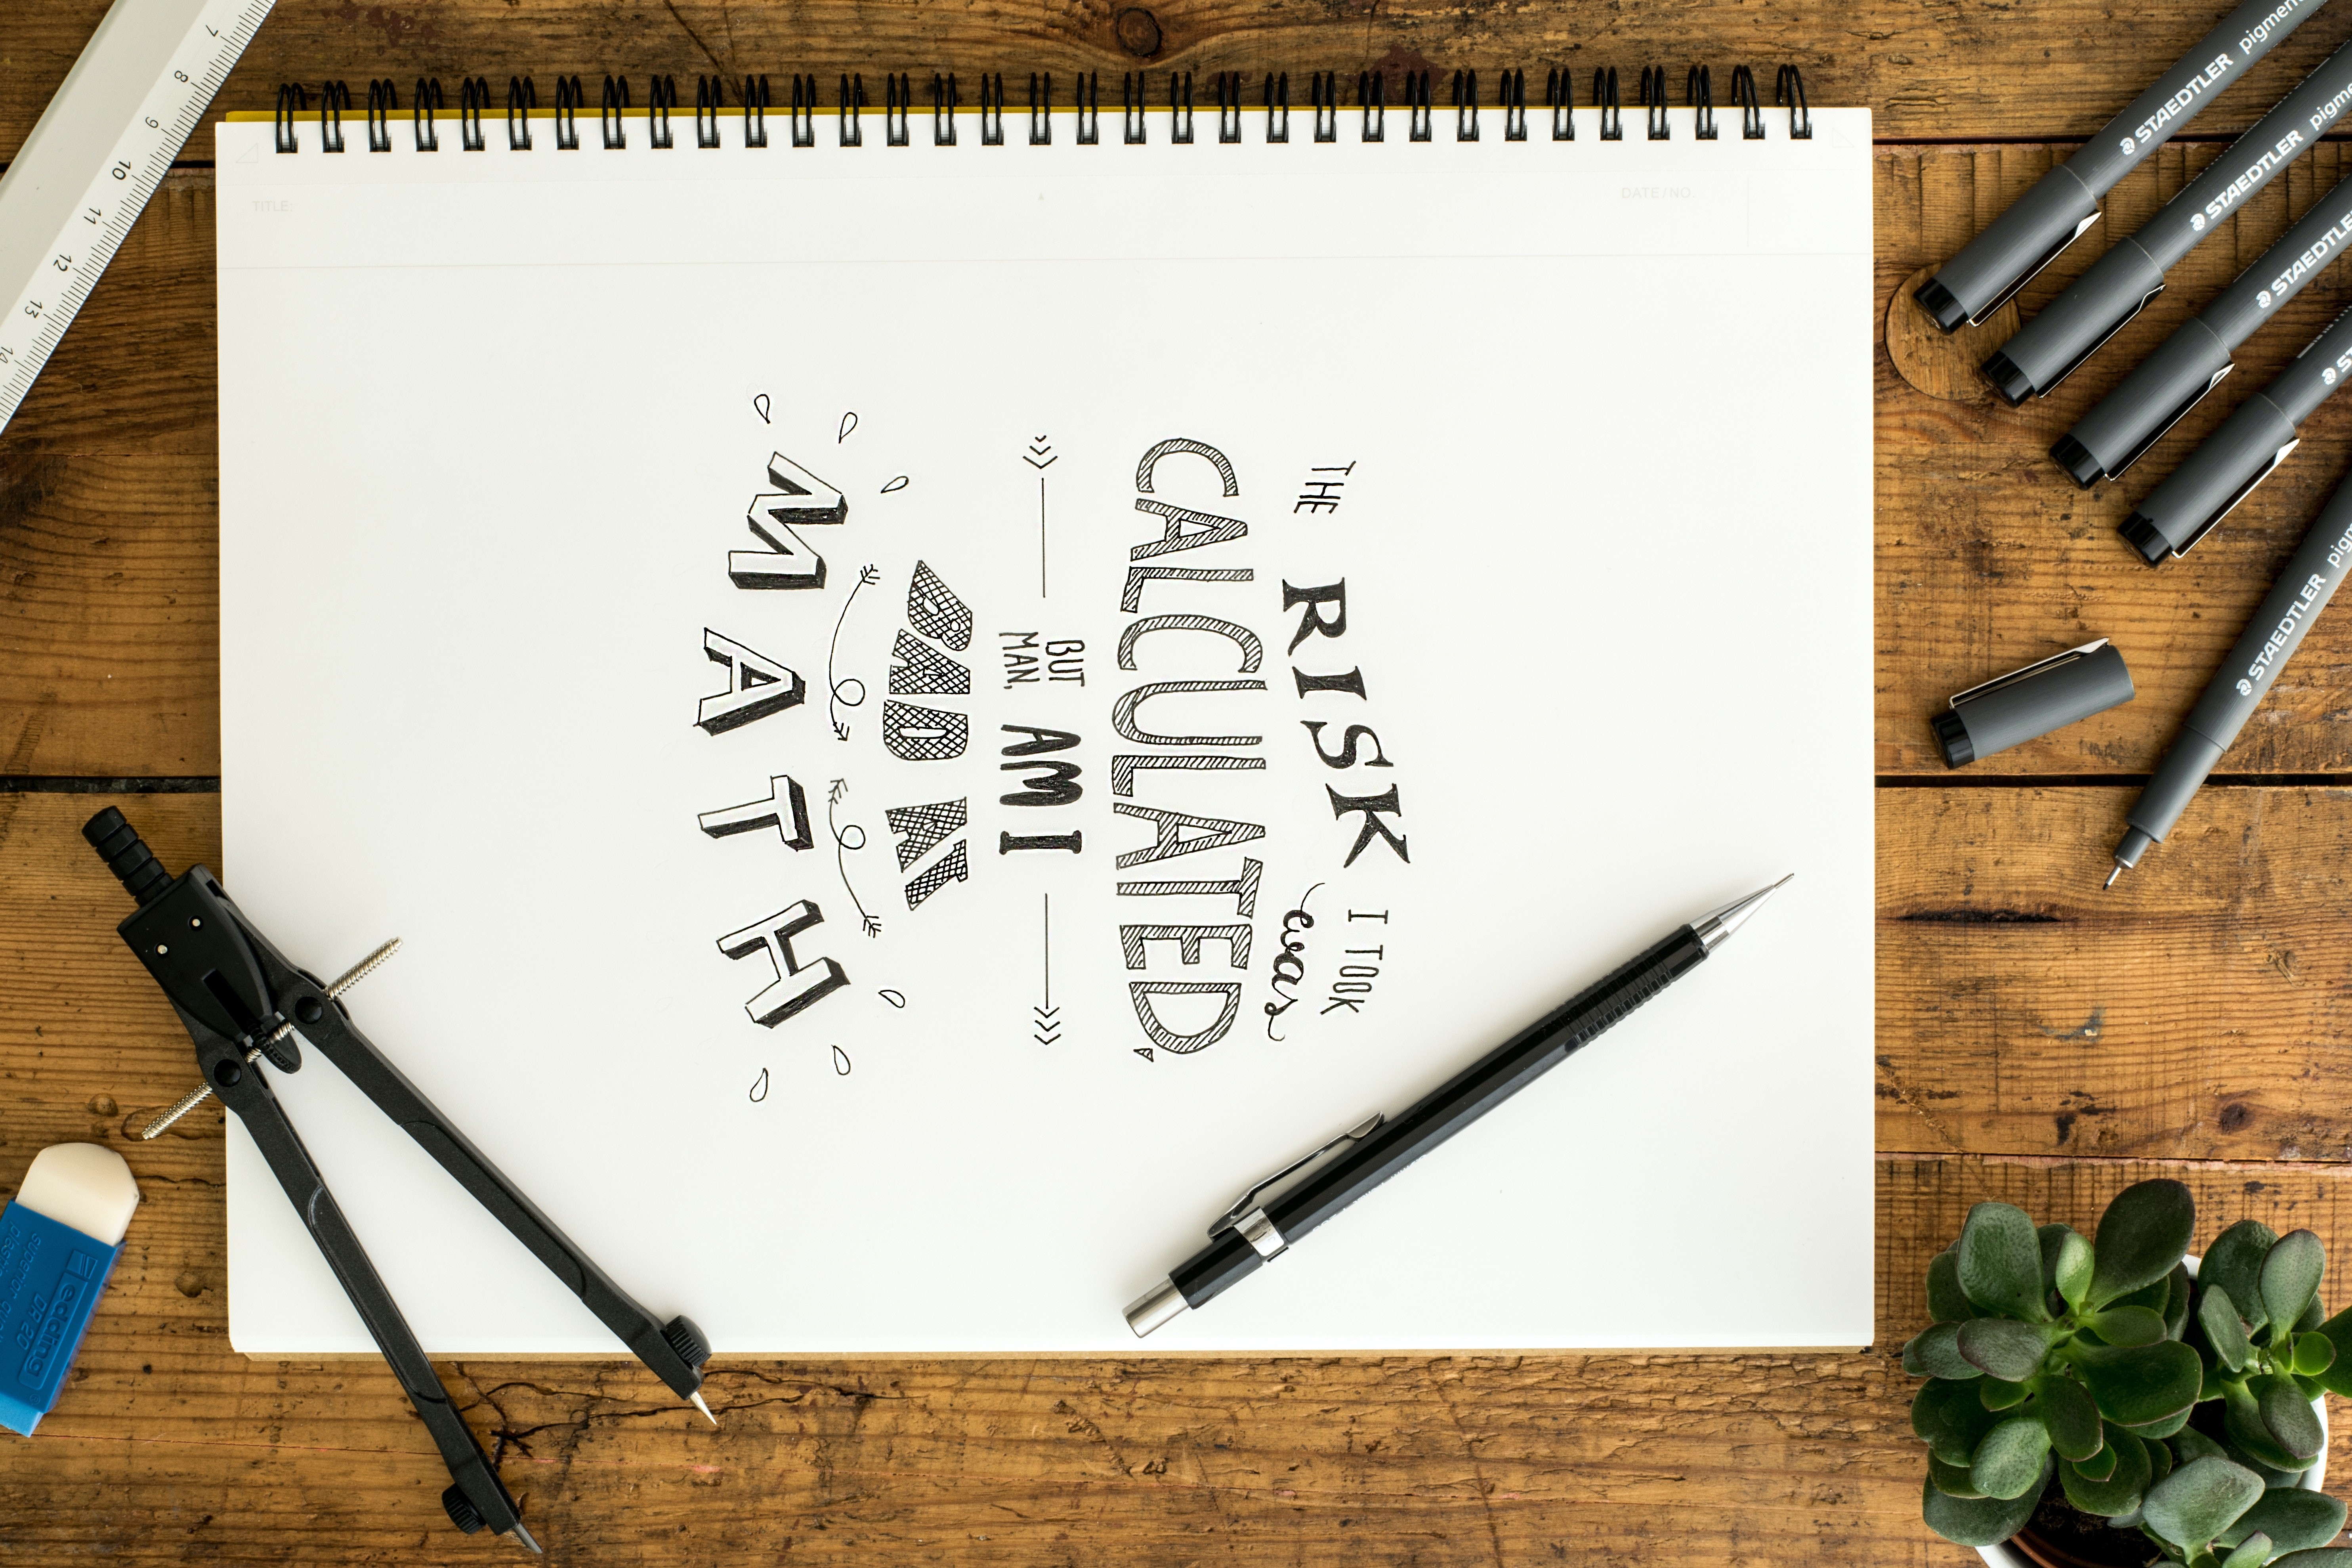 THE RISK I TOOK was
CALCULATED,
BUT MAN, AM I
BAD AT
MATH
TITLE:
DATE/NO.
7
8
9
10
11
12
13
14
STAEDTLER pigment
STAEDTLER
STAEDTLER
STAEDTLER
edding
DR 20